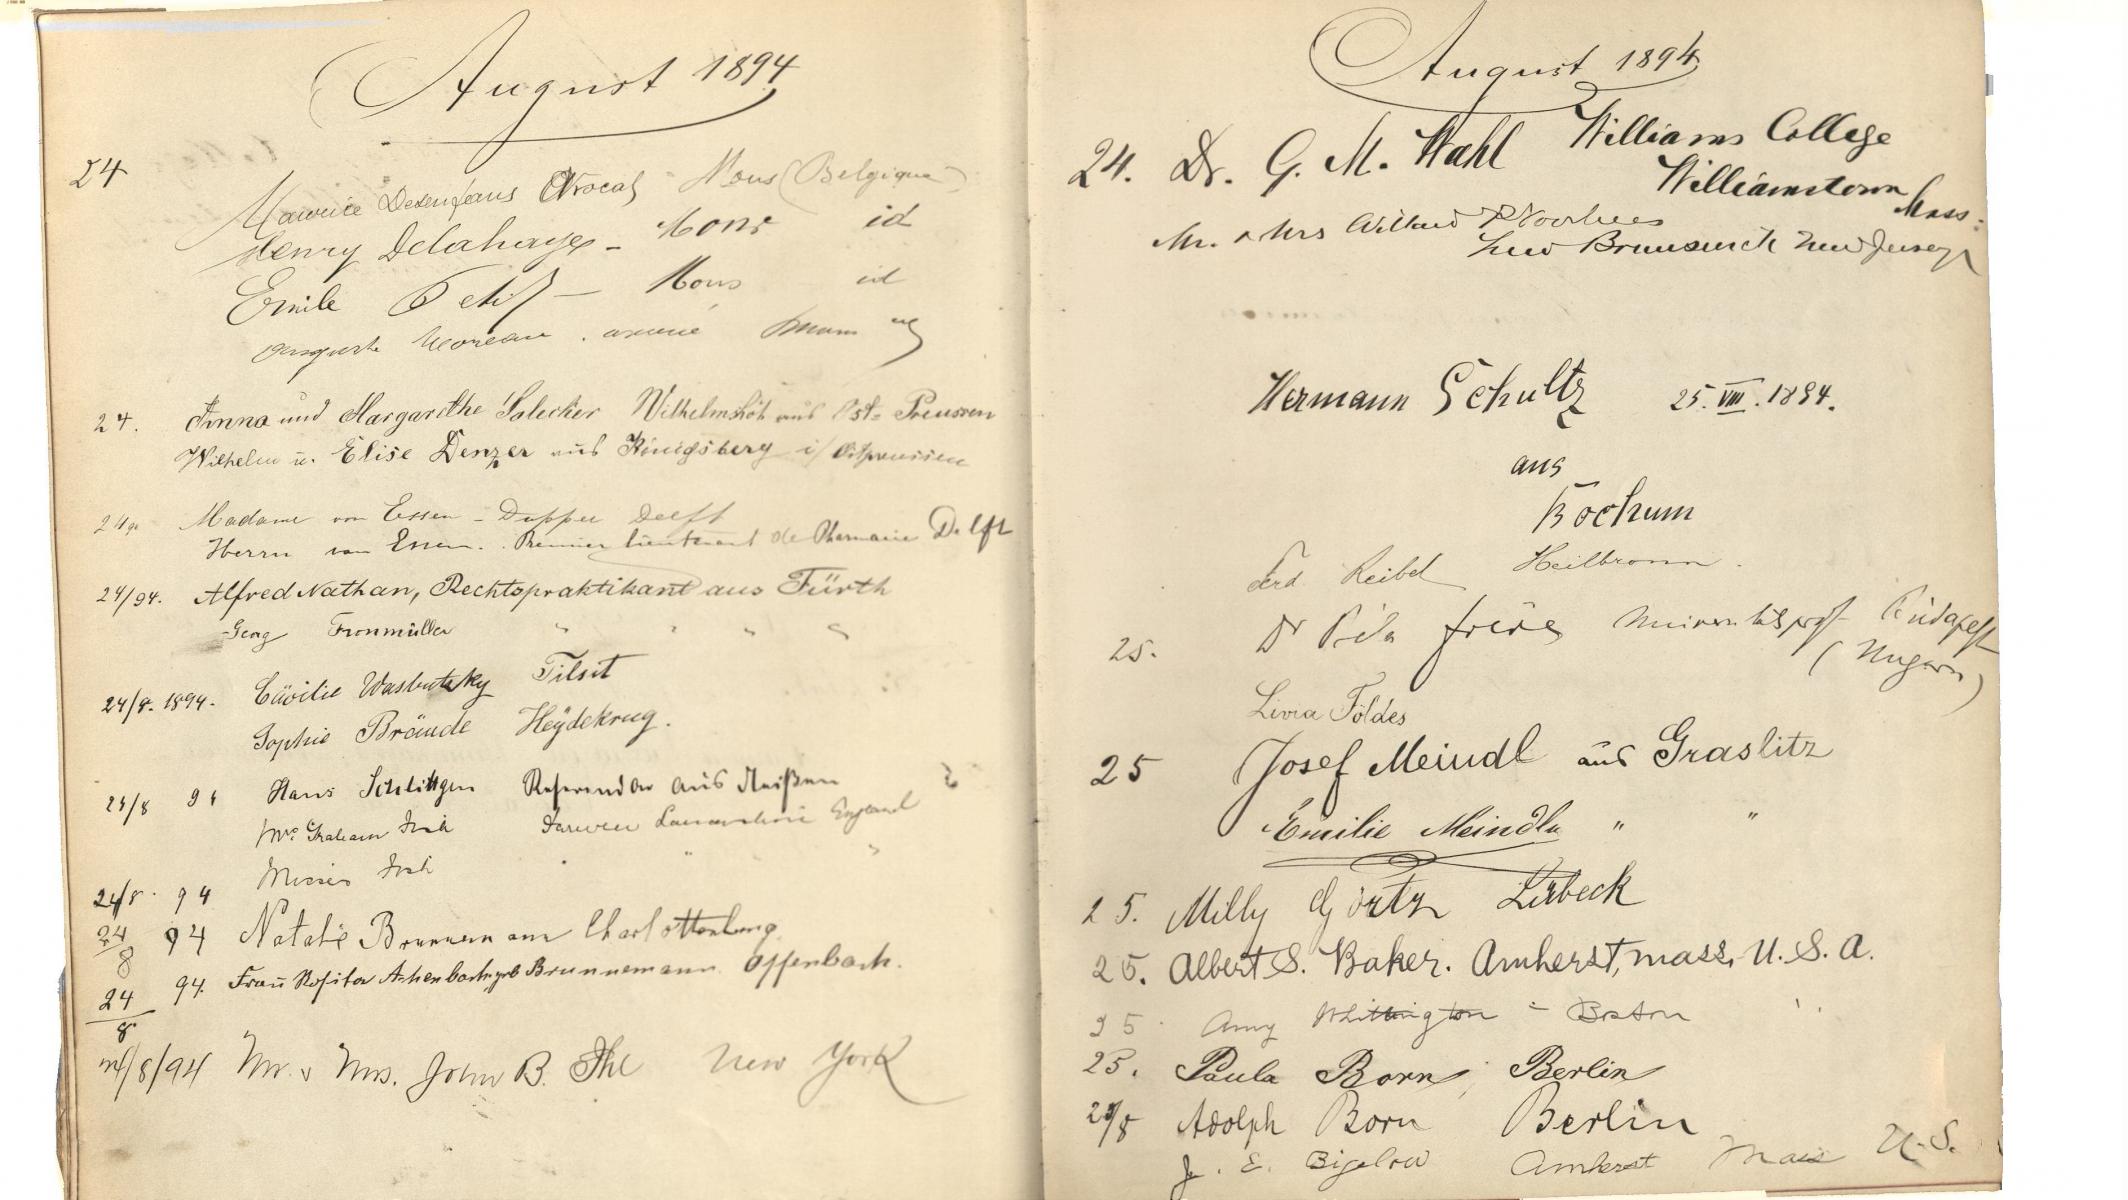 August 1894
24
Maurice Desenfans Avocat Mons (Belgique)
Henry Delahaye - Mons id
Emile Petit - Mons id
Moreau
24. Anna und Margarethe Salecker Wilhelmshöh aus Ost-Preussen
Wilhelm u. Elise Denzer aus Königsberg i/ Ostpreussen
24 Madame von Essen - Dupper Delft
Herrn von Essen. Premier Lieutenant de Pharmacie Delft
24/94. Alfred Nathan, Rechtspraktikant aus Fürth
Georg Fronmüller " " " "
24/8. 1894. Cäcilie Wasbutzky Tilsit
Sophie Bräude Heÿdekrug.
24/8 94 Hans Schlittgen Referendar aus Meißen
Mrs Graham Fish Darwen Lancashire England
Misses Fish " "
24/8. 94
24/8 94 Natalie Brunnemann Charlottenburg
24/8 94. Frau Achenbach geb Brunnemann Offenbach.
24/8/94 Mr. & Mrs. John B. Ihl New York
August 1894
24. Dr. G. M. Wahl Williams College
Williamstown Mass:
Mr. & Mrs Willard P Voorhees
New Brunswick New Jersey
Hermann Schultz 25. VIII. 1894.
aus
Bochum
Ferd Reibel Heilbronn.
25. Dr Béla Universitätsprof Budapest
(Ungarn)
Livia Földes
25 Josef Meindl aus Graslitz
Emilie Meindl " "
25. Milly Görtz Lübeck
25. Albert S. Baker. Amherst, Mass, U. S. A.
25 Amy Whittington - Boston "
25. Paula Born, Berlin
25/8 Adolph Born Berlin
J. E. Bigelow Amherst Mass U. S.